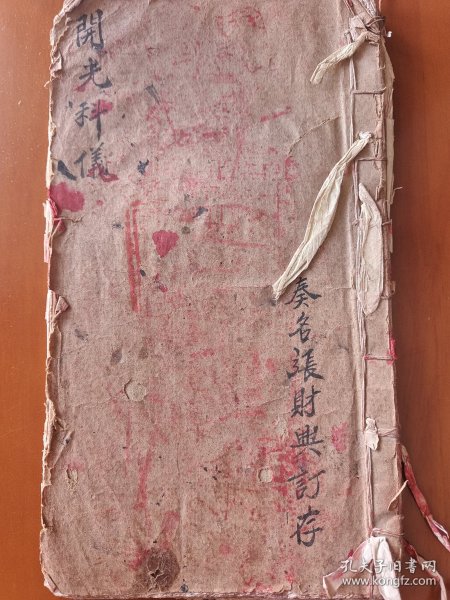 開光科儀
奏名張財興訂存
孔夫子旧书网
www.kongfz.com